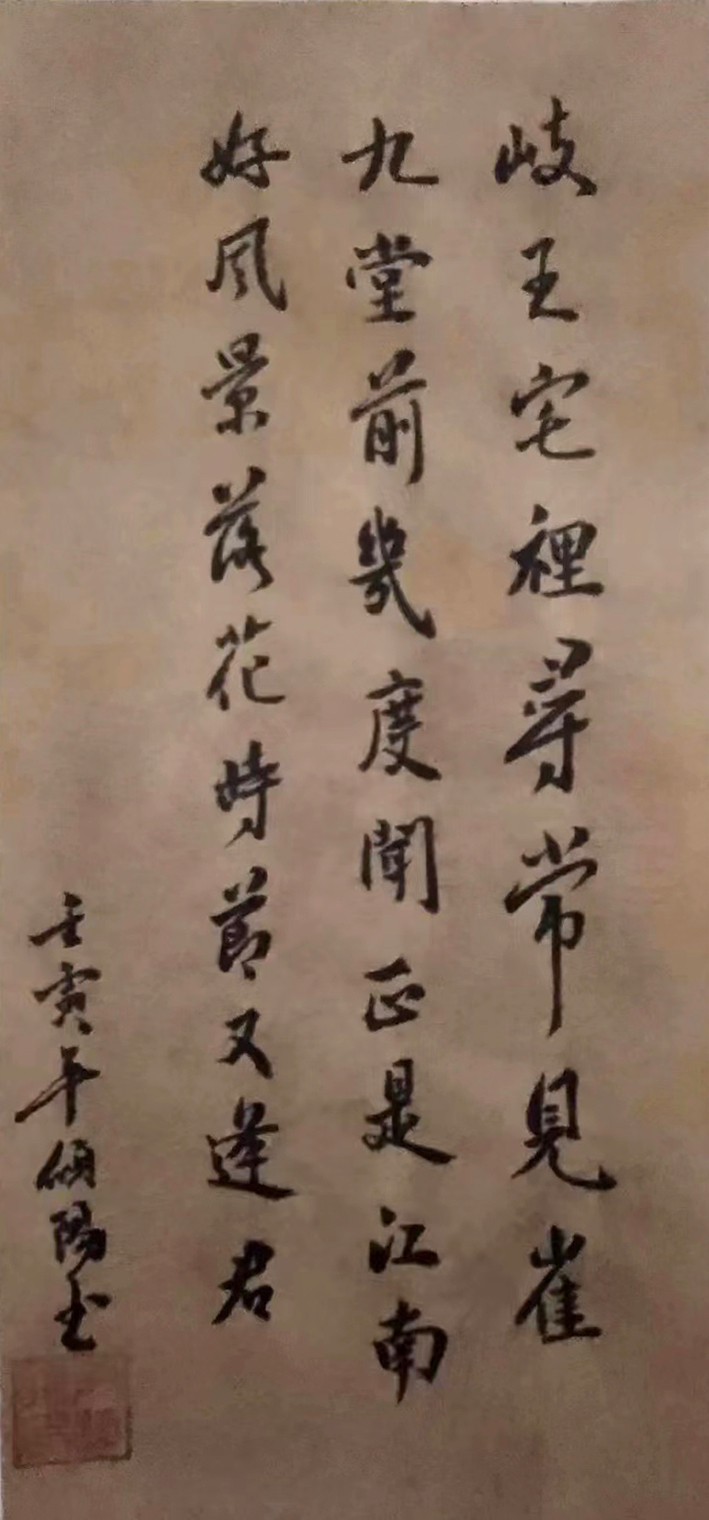 岐王宅裡尋常見崔
九堂前幾度聞正是江南
好風景落花時節又逢君
壬寅年倾陽书